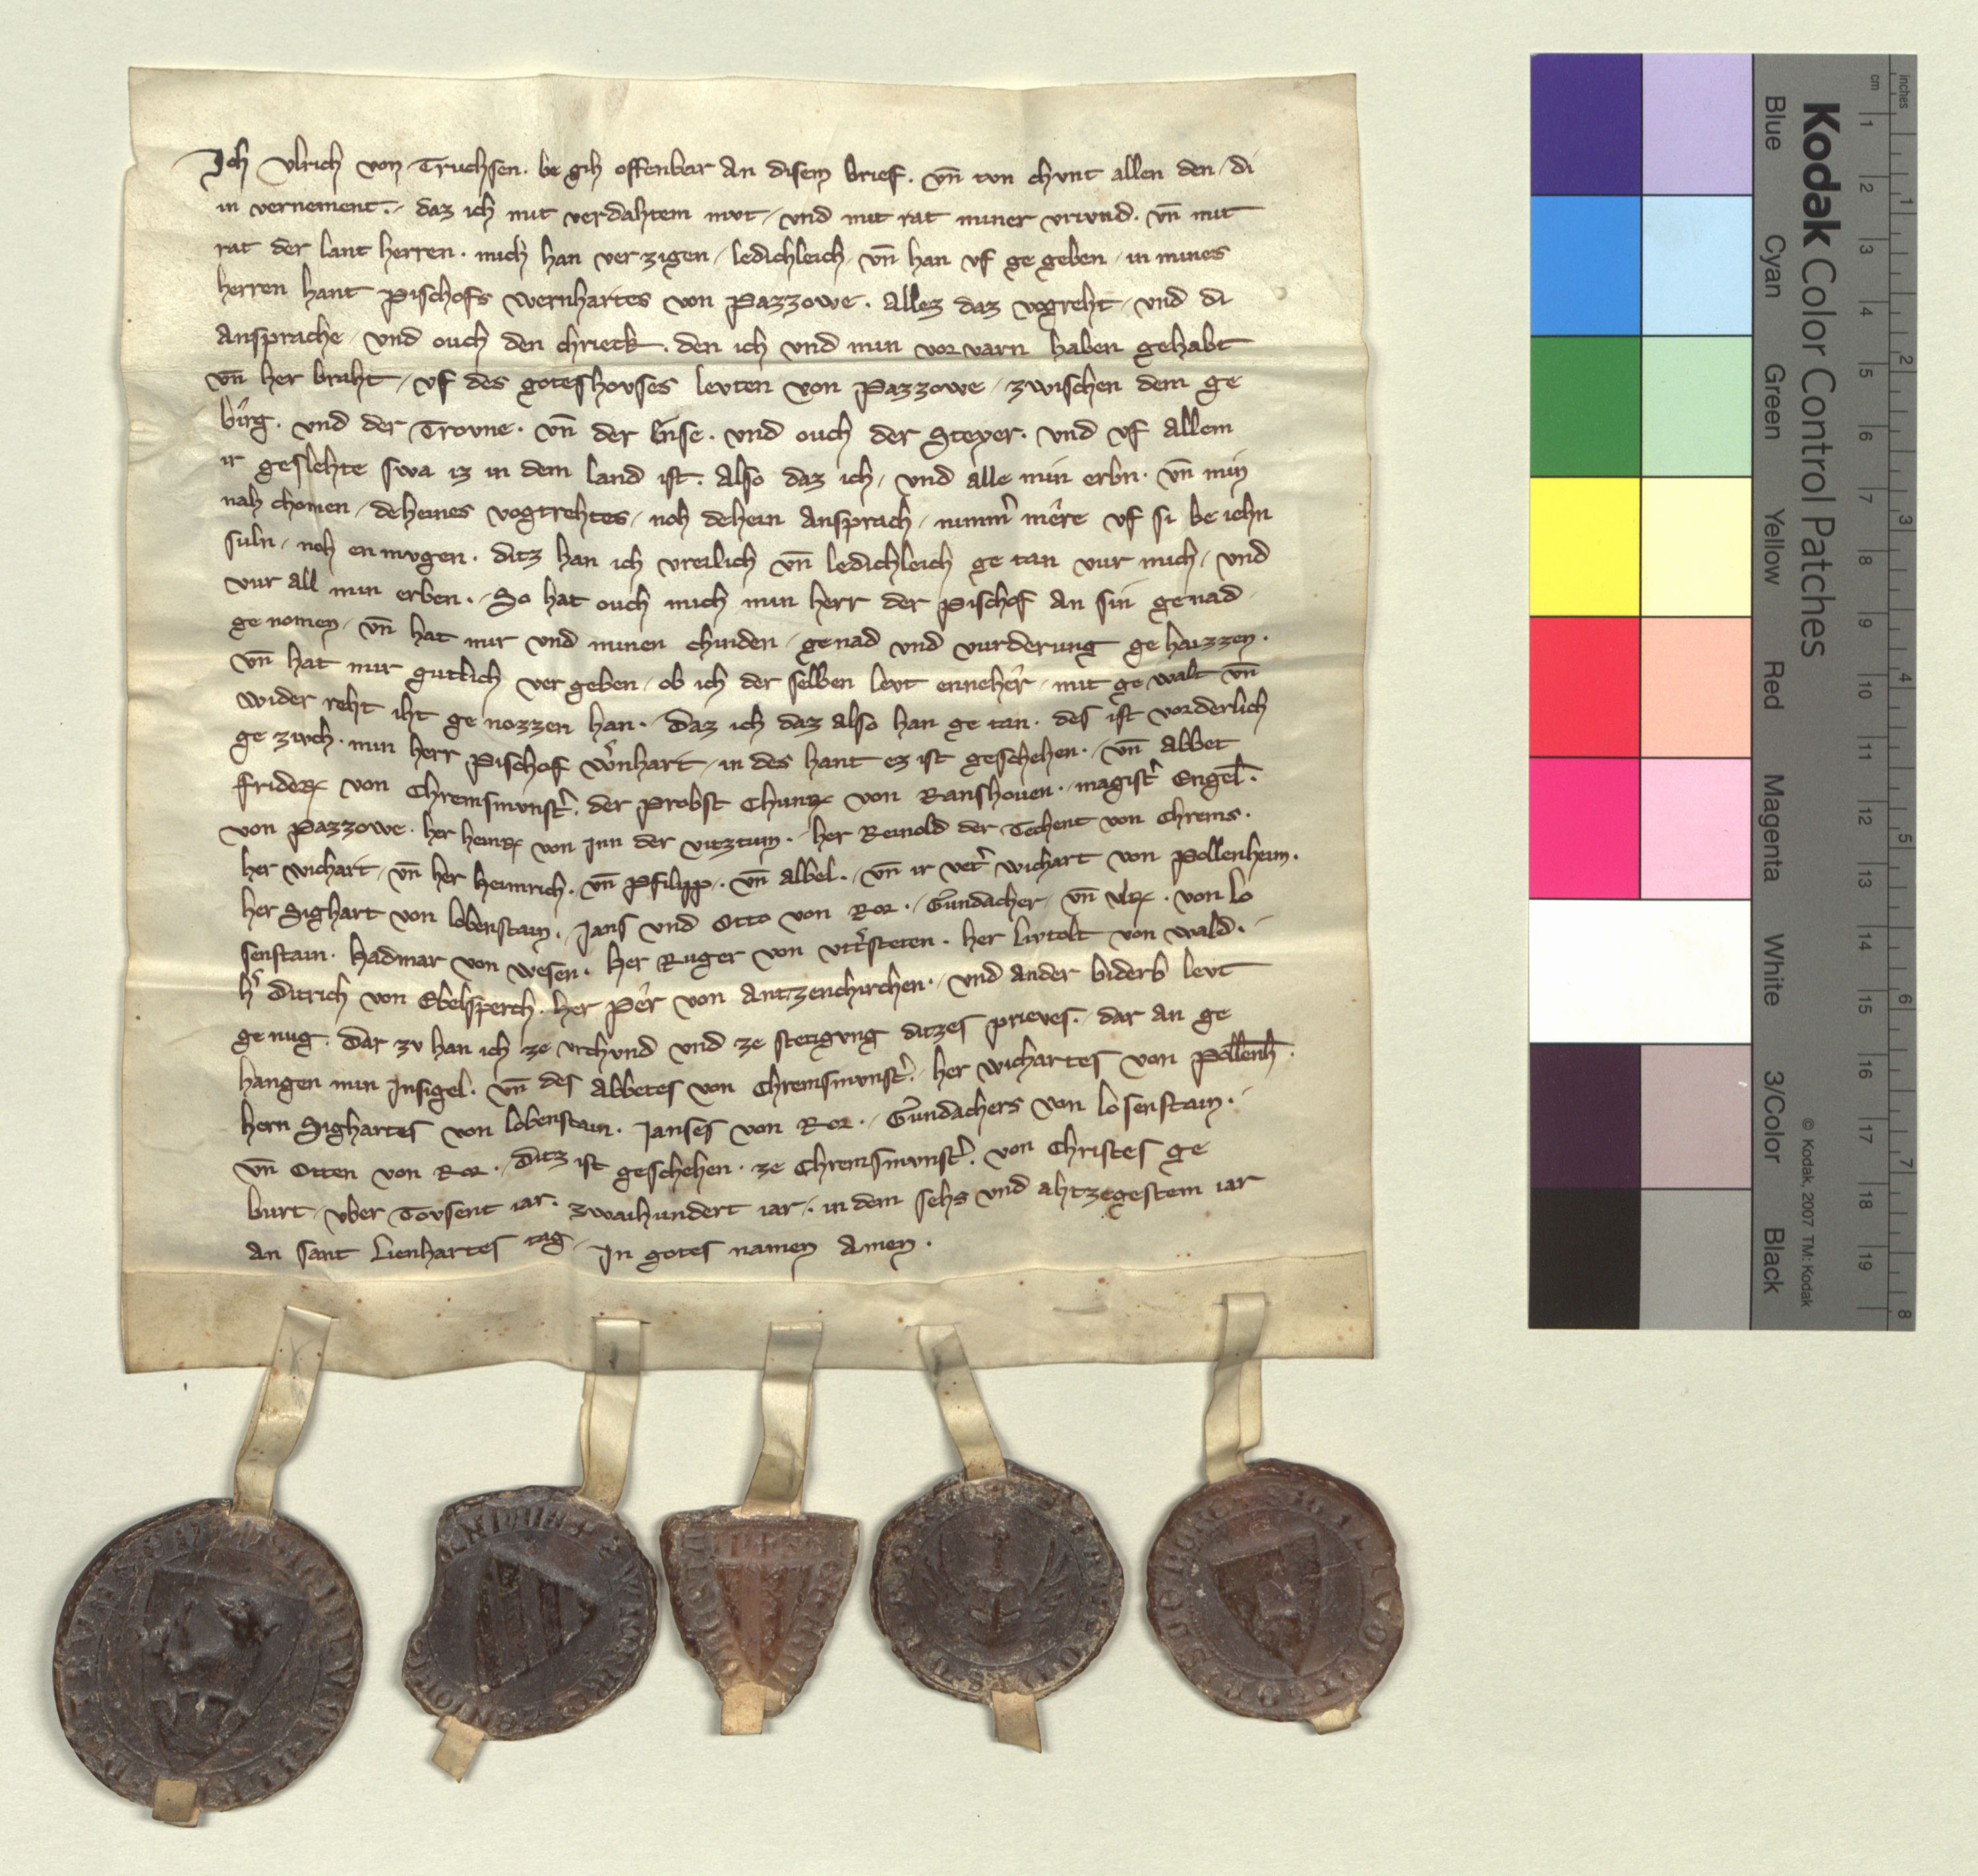 Ich Vlrich von Truchsen. be gih offenbar an disem brief. vn̄ tvn chvnt allen den, di
in vernement. daz ich mit verdahtem mvt, vnd mit rat miner vrivnd. vn̄ mit
rat der lant herren. mich han ver zigen, ledichleich, vn̄ han vf ge geben, in mines
herren hant Pischofs Wernhartes von Pazzowe. allez daz vogreht, vnd di
ansprache, vnd ouch den chrieck. den ich vnd min vor varn haben gehabt
vn̄ her braht, vf des goteshovses levten von Pazzowe, zwischen dem ge
birg. vnd der Trovne. vn̄ der Ense. vnd ouch der Steyer. vnd vf allem
ir geslehte swa iz in dem land ist. Also daz ich, vnd alle min erbn. vn̄ min
nah chomen, deheines vogtrehtes, noh dehein ansprach, nimm̉ mere vf si be iehn
suln, noh en mvgen. ditz han ich vreilich vn̄ ledichleich ge tan vur mich, vnd
vur all min erben. So hat ouch mich min herr der Pischof an sin genad
ge nomen, vn̄ hat mir vnd minen chinden, genad vnd vurderung ge haizzen.
vn̄ hat mir gutlich ver geben, ob ich der selben levt enneher, mit ge walt vn̄
wider reht iht ge nozzen han. Daz ich daz also han ge tan. des ist vorderlich
ge zivch. min herr Pischof W͛nhart, in des hant ez ist geschehen. vn̄ abbet
Frideꝝ von Chremsmvnst͛. der Probst Chunꝝ von Ranshouen. magist͛ Engel̄.
von Pazzowe. her heinꝝ von Inn der vitztum. her Reinold der Techent von Chrems.
her wichart, vn̄ her heinrich. vn̄ Pfilipp. vn̄ albel. vn̄ ir vet͛ wichart von Pollenheim.
her Sighart von lobenstain. Jans vnd Otto von Ror. Gundacher vn̄ vlꝝ. von lo
senstain. hadmar von wesen. her Ruger von vtt͛steten. her livtolt von wald.
h͛ ditrich von Ebelsperch. her Pe͛r von Antzenchirchen. vnd ander biderb levt
ge nug. Dar zv han ich ze vrchvnd vnd ze stetigvng ditzes prieves. dar an ge
hangen min Insigel. vn̄ des abbetes von Chremsmvnst͛. her wichartes von Pollenh̄.
hern Sighartes von lobenstain. Janses von Ror. Gundachers von losenstain.
vn̄ Otten von Ror. Ditz ist geschehen. ze Chremsmvnst͛. von Christes ge
burt, vber Tovsent iar. zwaihundert iar. in dem sehs vnd ahtzegestem iar
an sant Lienhartes tag. In gotes namen Amen.
Kodak Color Control Patches
Blue Cyan Green Yellow Red Magenta White 3/Color Black
© Kodak, 2007 TM: Kodak
inches 1 2 3 4 5 6 7 8
cm 1 2 3 4 5 6 7 8 9 10 11 12 13 14 15 16 17 18 19